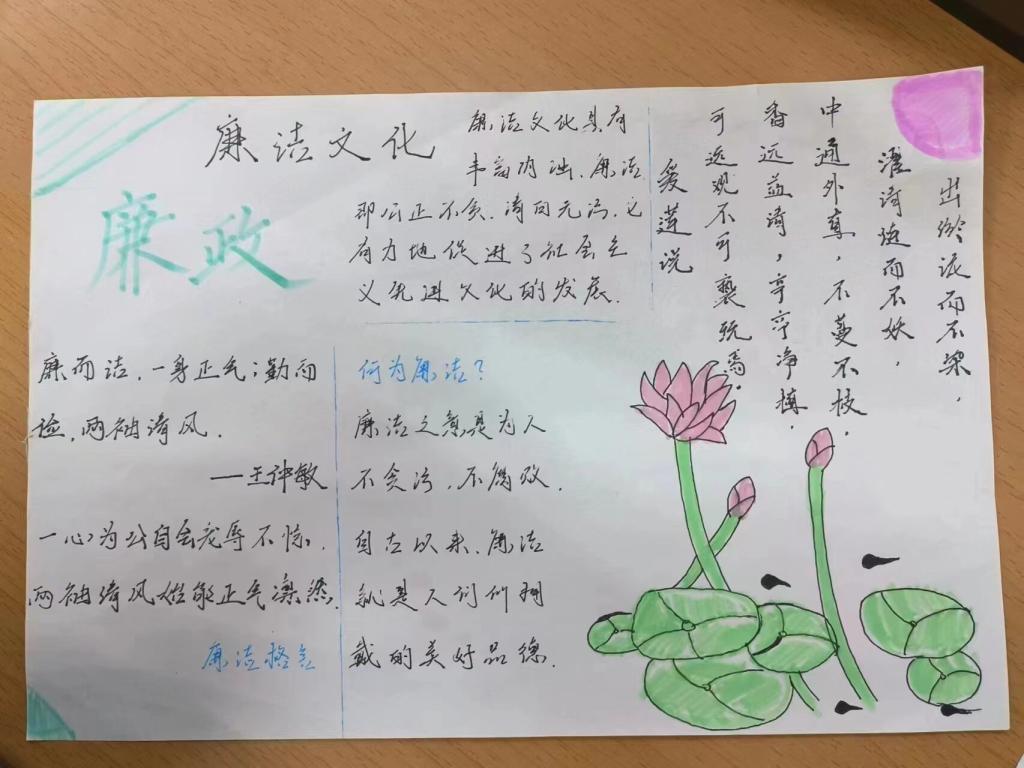 廉洁文化
廉政
廉洁文化具有
丰富内涵.廉洁
即公正不贪.清白无污.它
有力地促进了社会主
义先进文化的发展.
廉而洁,一身正气;勤而
俭,两袖清风.
一心为公自会宠辱不惊.
两袖清风始能正气凛然.
廉洁格言
何为廉洁?
廉洁之意是为人
不贪污,不腐败.
自古以来,廉洁
就是人们所拥
戴的美好品德.
出淤泥而不染,
濯清涟而不妖,
中通外直,不蔓不枝,
香远益清,亭亭净植,
可远观不可亵玩焉.
爱莲说